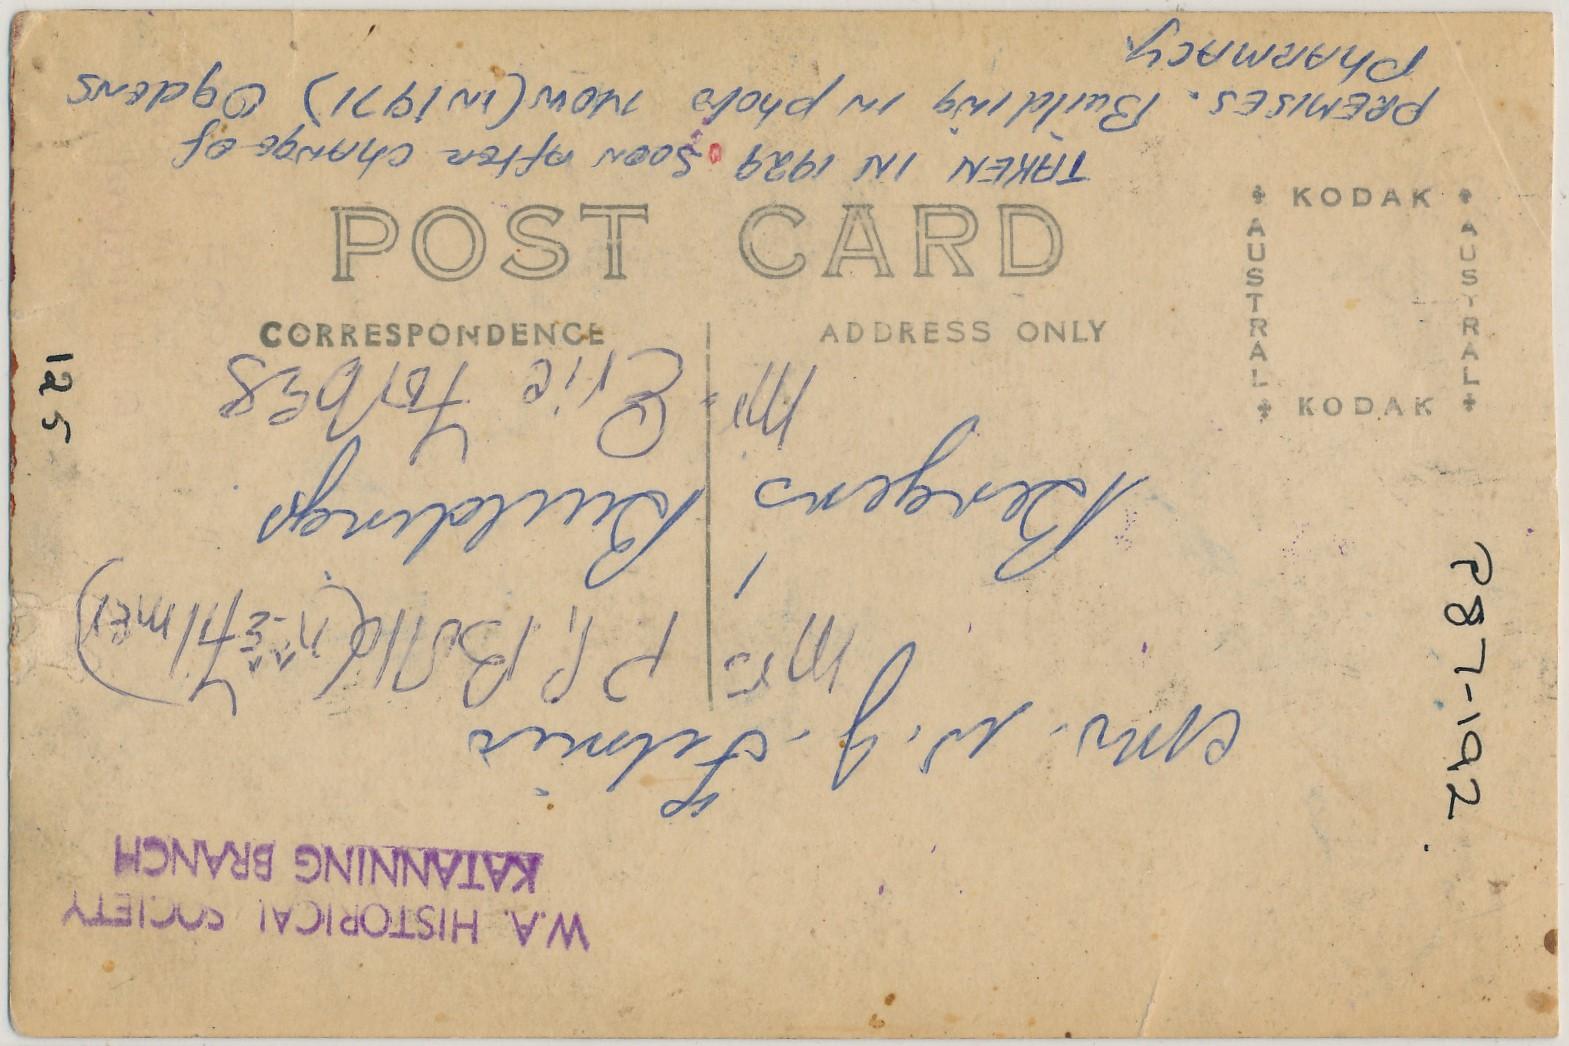 POST CARD
CORRESPONDENCE
ADDRESS ONLY
KODAK
AUSTRAL
AUSTRAL
KODAK
125
P87-192
W.A. HISTORICAL SOCIETY
KATANNING BRANCH
Mr. W. J. Filmer
Mrs (née Filmer)
Buildings
Mr. Eric Forbes
TAKEN IN 1929 soon after change of
PREMISES. Building in photo now (in 1971) Ogdens
Pharmacy